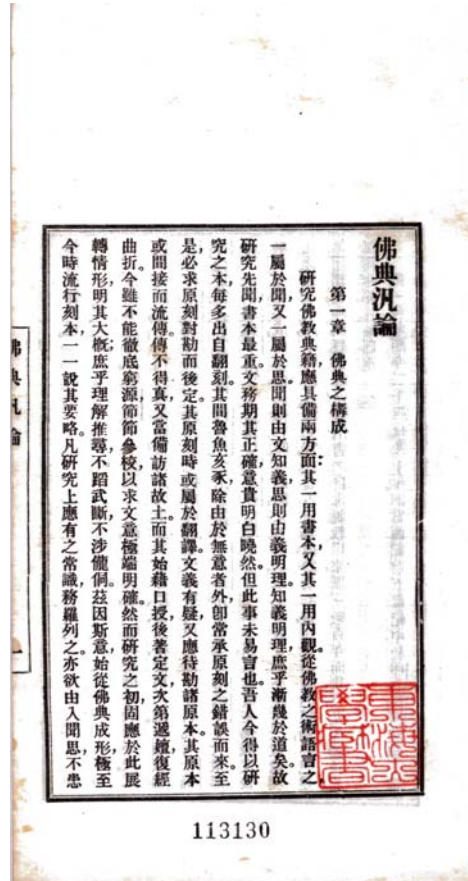 佛典汎論
第一章　佛典之構成
研究佛教典籍應具備兩方面：其一用書本，又其一用內觀。從佛教之術語言之，
一屬於聞，又一屬於思。聞則由文知義，思則由義明理。知義明理，庶乎漸幾於道矣。故
研究先聞，書本最重。文務期其正確，意貴明白曉然。但此事未易言也。吾人今得以研
究之本，每多出自翻刻。其間魯魚亥豕，除由於無意者外，卽常承原刻之錯誤而來。至
是必求原刻對勘而後定。其原刻時或屬於翻譯。文義有疑，又應待勘諸原本。其原本
或間接而流傳，傳不得真，又當備訪諸故土。而其始藉口授，後著定文，次第遞嬗，復經
曲折。今雖不能徹底窮源，節節參校，以求文意極端明確。然而研究之初，固應於此展
轉情形，明其大概，庶乎理解推尋，不蹈武斷，不涉儱侗。茲因斯意，始從佛典成形，極至
今時流行刻本，一一說其要略。凡研究上應有之常識，務羅列之。亦欲由入聞思，不患
佛典汎論
一
113130